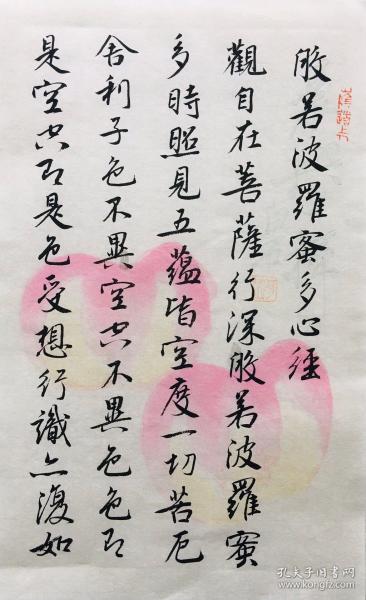 般若波羅蜜多心經
觀自在菩薩行深般若波羅蜜
多時照見五蘊皆空度一切苦厄
舍利子色不異空空不異色色即
是空空即是色受想行識亦復如
孔夫子旧书网
www.kongfz.com